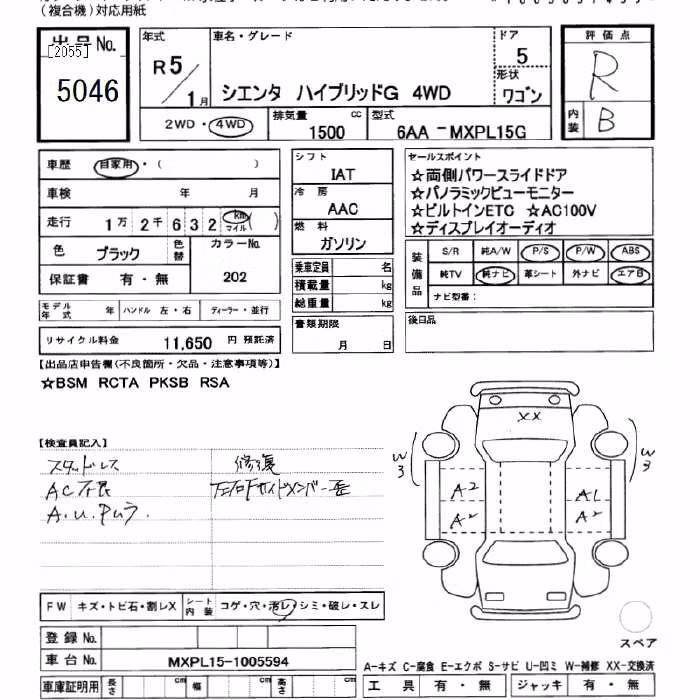 (複合機)対応用紙
出品No.
[2055]
5046
年式
R5/1月
車名・グレード
シエンタ ハイブリッドG 4WD
ドア
5
形状
ワゴン
評価点
R
内装
B
2WD・4WD
排気量
1500 cc
型式
6AA-MXPL15G
車歴 自家用・( )
車検 年 月
走行 1万2千632 km マイル ( )
色 ブラック
色替
カラーNo.
202
保証書 有・無
モデル年式 年
ハンドル 左・右
ディーラー・並行
リサイクル料金 11,650 円 預託済
シフト
IAT
冷房
AAC
燃料
ガソリン
乗車定員 名
積載量 kg
総重量 kg
書類期限
月 日
セールスポイント
☆両側パワースライドドア
☆パノラミックビューモニター
☆ビルトインETC ☆AC100V
☆ディスプレイオーディオ
装備品
S/R 純A/W P/S P/W ABS
純TV 純ナビ 革シート 外ナビ エアB
ナビ型番:
後日品
【出品店申告欄(不良箇所・欠品・注意事項等)】
☆BSM RCTA PKSB RSA
【検査員記入】
スタッドレス
AC不良
A.U.Pムラ.
修復
XX
W3
W3
A2
A2
A1
A2
FW キズ・トビ石・割レX
シート内装 コゲ・穴・汚レ・シミ・破レ・スレ
登録No.
車台No. MXPL15-1005594
車庫証明用 長さ cm 幅 cm 高さ cm
スペア
A-キズ C-腐食 E-エクボ S-サビ U-凹ミ W-補修 XX-交換済
工具 有・無 ジャッキ 有・無